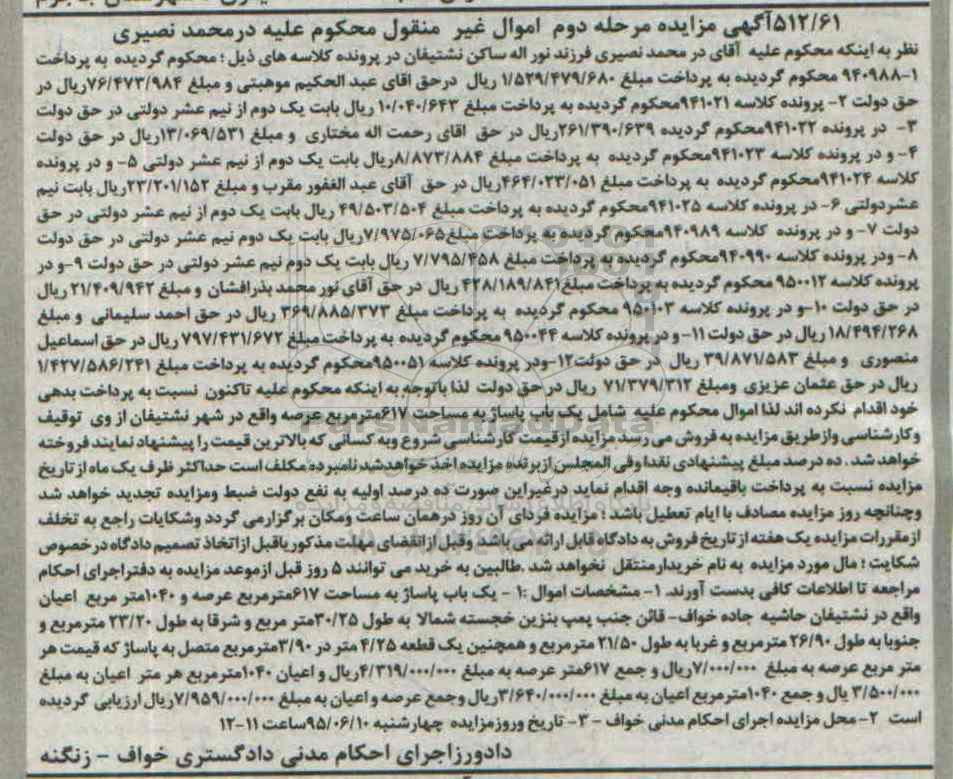 ۵۱۲/۶۱آگهی مزایده مرحله دوم اموال غیر منقول محکوم علیه درمحمد نصیری
نظر به اینکه محکوم علیه آقای در محمد نصیری فرزند نور اله ساکن نشتیفان در پرونده کلاسه های ذیل ؛ محکوم گردیده به پرداخت
۱-۹۴۰۹۸۸ محکوم گردیده به پرداخت مبلغ ۱/۵۲۹/۴۷۹/۶۸۰ ریال درحق اقای عبد الحکیم موهبتی و مبلغ ۷۶/۴۷۳/۹۸۴ریال در
حق دولت ۲- پرونده کلاسه ۹۴۱۰۲۱محکوم گردیده به پرداخت مبلغ ۱۰/۰۴۰/۶۴۳ ریال بابت یک دوم از نیم عشر دولتی در حق دولت
۳- در پرونده ۹۴۱۰۲۲محکوم گردیده ۲۶۱/۳۹۰/۶۳۹ریال در حق اقای رحمت اله مختاری و مبلغ ۱۳/۰۶۹/۵۳۱ریال در حق دولت
۴- و در پرونده کلاسه ۹۴۱۰۲۳محکوم گردیده به پرداخت مبلغ ۸/۸۷۳/۸۸۴ریال بابت یک دوم از نیم عشر دولتی ۵- و در پرونده
کلاسه ۹۴۱۰۲۴محکوم گردیده به پرداخت مبلغ ۴۶۴/۰۲۳/۰۵۱ریال در حق آقای عبد الغفور مقرب و مبلغ ۲۳/۲۰۱/۱۵۲ریال بابت نیم
عشردولتی ۶- در پرونده کلاسه ۹۴۱۰۲۵محکوم گردیده به پرداخت مبلغ ۴۹/۵۰۳/۵۰۴ ریال بابت یک دوم از نیم عشر دولتی در حق
دولت ۷- و در پرونده کلاسه ۹۴۰۹۸۹محکوم گردیده به پرداخت مبلغ۷/۹۷۵/۰۶۵ریال بابت یک دوم نیم عشر دولتی در حق دولت
۸- ودر پرونده کلاسه ۹۴۰۹۹۰محکوم گردیده به پرداخت مبلغ ۷/۷۹۵/۴۵۸ ریال بابت یک دوم نیم عشر دولتی در حق دولت ۹-و در
پرونده کلاسه ۹۵۰۰۱۲ محکوم گردیده به پرداخت مبلغ۴۲۸/۱۸۹/۸۴۱ ریال در حق آقای نور محمد بذرافشان و مبلغ ۲۱/۴۰۹/۹۴۲ ریال
در حق دولت ۱۰-و در پرونده کلاسه ۹۵۰۱۰۳ محکوم گردیده به پرداخت مبلغ ۳۶۹/۸۸۵/۳۷۳ ریال در حق احمد سلیمانی و مبلغ
۱۸/۴۹۴/۲۶۸ ریال در حق دولت ۱۱- و در پرونده کلاسه ۹۵۰۰۴۴ محکوم گردیده به پرداخت مبلغ ۷۹۷/۴۳۱/۶۷۲ ریال در حق اسماعیل
منصوری و مبلغ ۳۹/۸۷۱/۵۸۳ ریال در حق دولت۱۲-ودر پرونده کلاسه ۹۵۰۰۵۱محکوم گردیده به پرداخت مبلغ ۱/۴۲۷/۵۸۶/۲۴۱
ریال در حق عثمان عزیزی ومبلغ ۷۱/۳۷۹/۳۱۲ ریال در حق دولت لذا باتوجه به اینکه محکوم علیه تاکنون نسبت به پرداخت بدهی
خود اقدام نکرده اند لذا اموال محکوم علیه شامل یک باب پاساژ به مساحت ۶۱۷مترمربع عرصه واقع در شهر نشتیفان از وی توقیف
وکارشناسی وازطریق مزایده به فروش می رسد مزایده ازقیمت کارشناسی شروع وبه کسانی که بالاترین قیمت را پیشنهاد نمایند فروخته
خواهد شد . ده درصد مبلغ پیشنهادی نقدا وفی المجلس ازبرنده مزایده اخذ خواهدشد نامبرده مکلف است حداکثر ظرف یک ماه از تاریخ
مزایده نسبت به پرداخت باقیمانده وجه اقدام نماید درغیراین صورت ده درصد اولیه به نفع دولت ضبط ومزایده تجدید خواهد شد
وچنانچه روز مزایده مصادف با ایام تعطیل باشد ؛ مزایده فردای آن روز درهمان ساعت ومکان برگزارمی گردد وشکایات راجع به تخلف
ازمقررات مزایده یک هفته از تاریخ فروش به دادگاه قابل ارائه می باشد وقبل ازانقضای مهلت مذکور یاقبل ازاتخاذ تصمیم دادگاه درخصوص
شکایت ؛ مال مورد مزایده به نام خریدارمنتقل نخواهد شد .طالبین به خرید می توانند ۵ روز قبل ازموعد مزایده به دفتراجرای احکام
مراجعه تا اطلاعات کافی بدست آورند. ۱- مشخصات اموال :۱ - یک باب پاساژ به مساحت ۶۱۷مترمربع عرصه و ۱۰۴۰متر مربع اعیان
واقع در نشتیفان حاشیه جاده خواف- قائن جنب پمپ بنزین خجسته شمالا به طول ۳۰/۲۵متر مربع و شرقا به طول ۲۳/۲۰ مترمربع و
جنوبا به طول ۲۶/۹۰ مترمربع و غربا به طول ۲۱/۵۰ مترمربع و همچنین یک قطعه ۴/۲۵ متر در ۳/۹۰مترمربع متصل به پاساژ که قیمت هر
متر مربع عرصه به مبلغ ۷/۰۰۰/۰۰۰ریال و جمع ۶۱۷متر عرصه به مبلغ ۴/۳۱۹/۰۰۰/۰۰۰ریال و اعیان ۱۰۴۰مترمربع هر متر اعیان به مبلغ
۳/۵۰۰/۰۰۰ یال و جمع ۱۰۴۰مترمربع اعیان به مبلغ ۳/۶۴۰/۰۰۰/۰۰۰ریال وجمع عرصه و اعیان به مبلغ ۷/۹۵۹/۰۰۰/۰۰۰ریال ارزیابی گردیده
است ۲- محل مزایده اجرای احکام مدنی خواف - ۳- تاریخ وروزمزایده چهارشنبه ۹۵/۰۶/۱۰ساعت ۱۱-۱۲
دادورزاجرای احکام مدنی دادگستری خواف - زنگنه
ParsNamadData